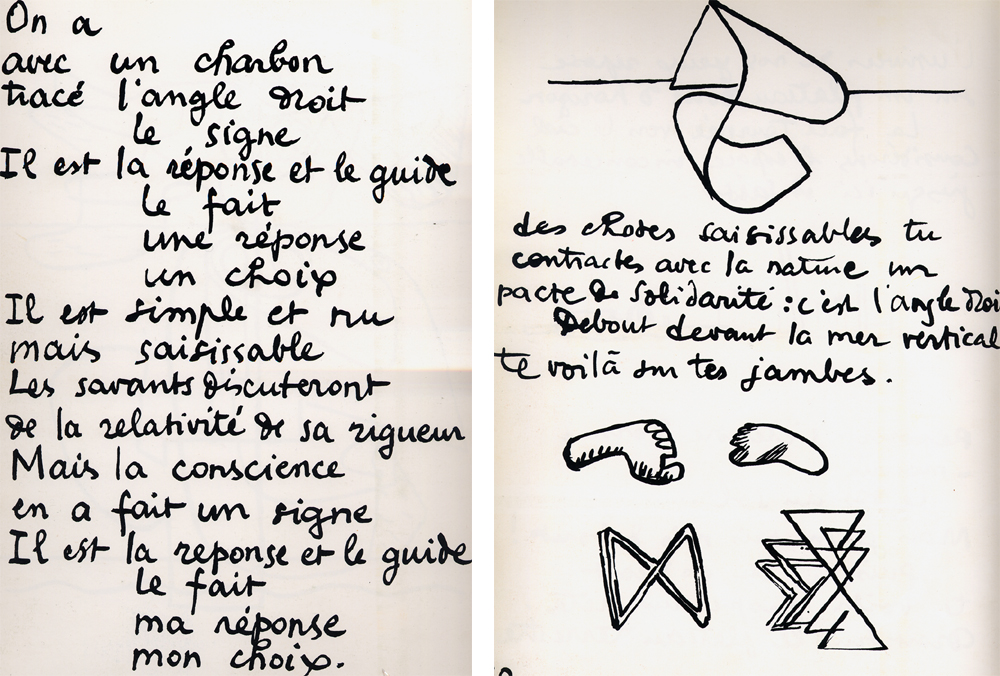 On a
avec un charbon
tracé l'angle droit
le signe
Il est la réponse et le guide
le fait
une réponse
un choix
Il est simple et nu
mais saisissable
Les savants discuteront
de la relativité de sa rigueur
Mais la conscience
en a fait un signe
Il est la reponse et le guide
le fait
ma réponse
mon choix.
des choses saisissables tu
contractes avec la nature un
pacte de solidarité : c'est l'angle droi
Debout devant la mer vertical
te voilà sur tes jambes.